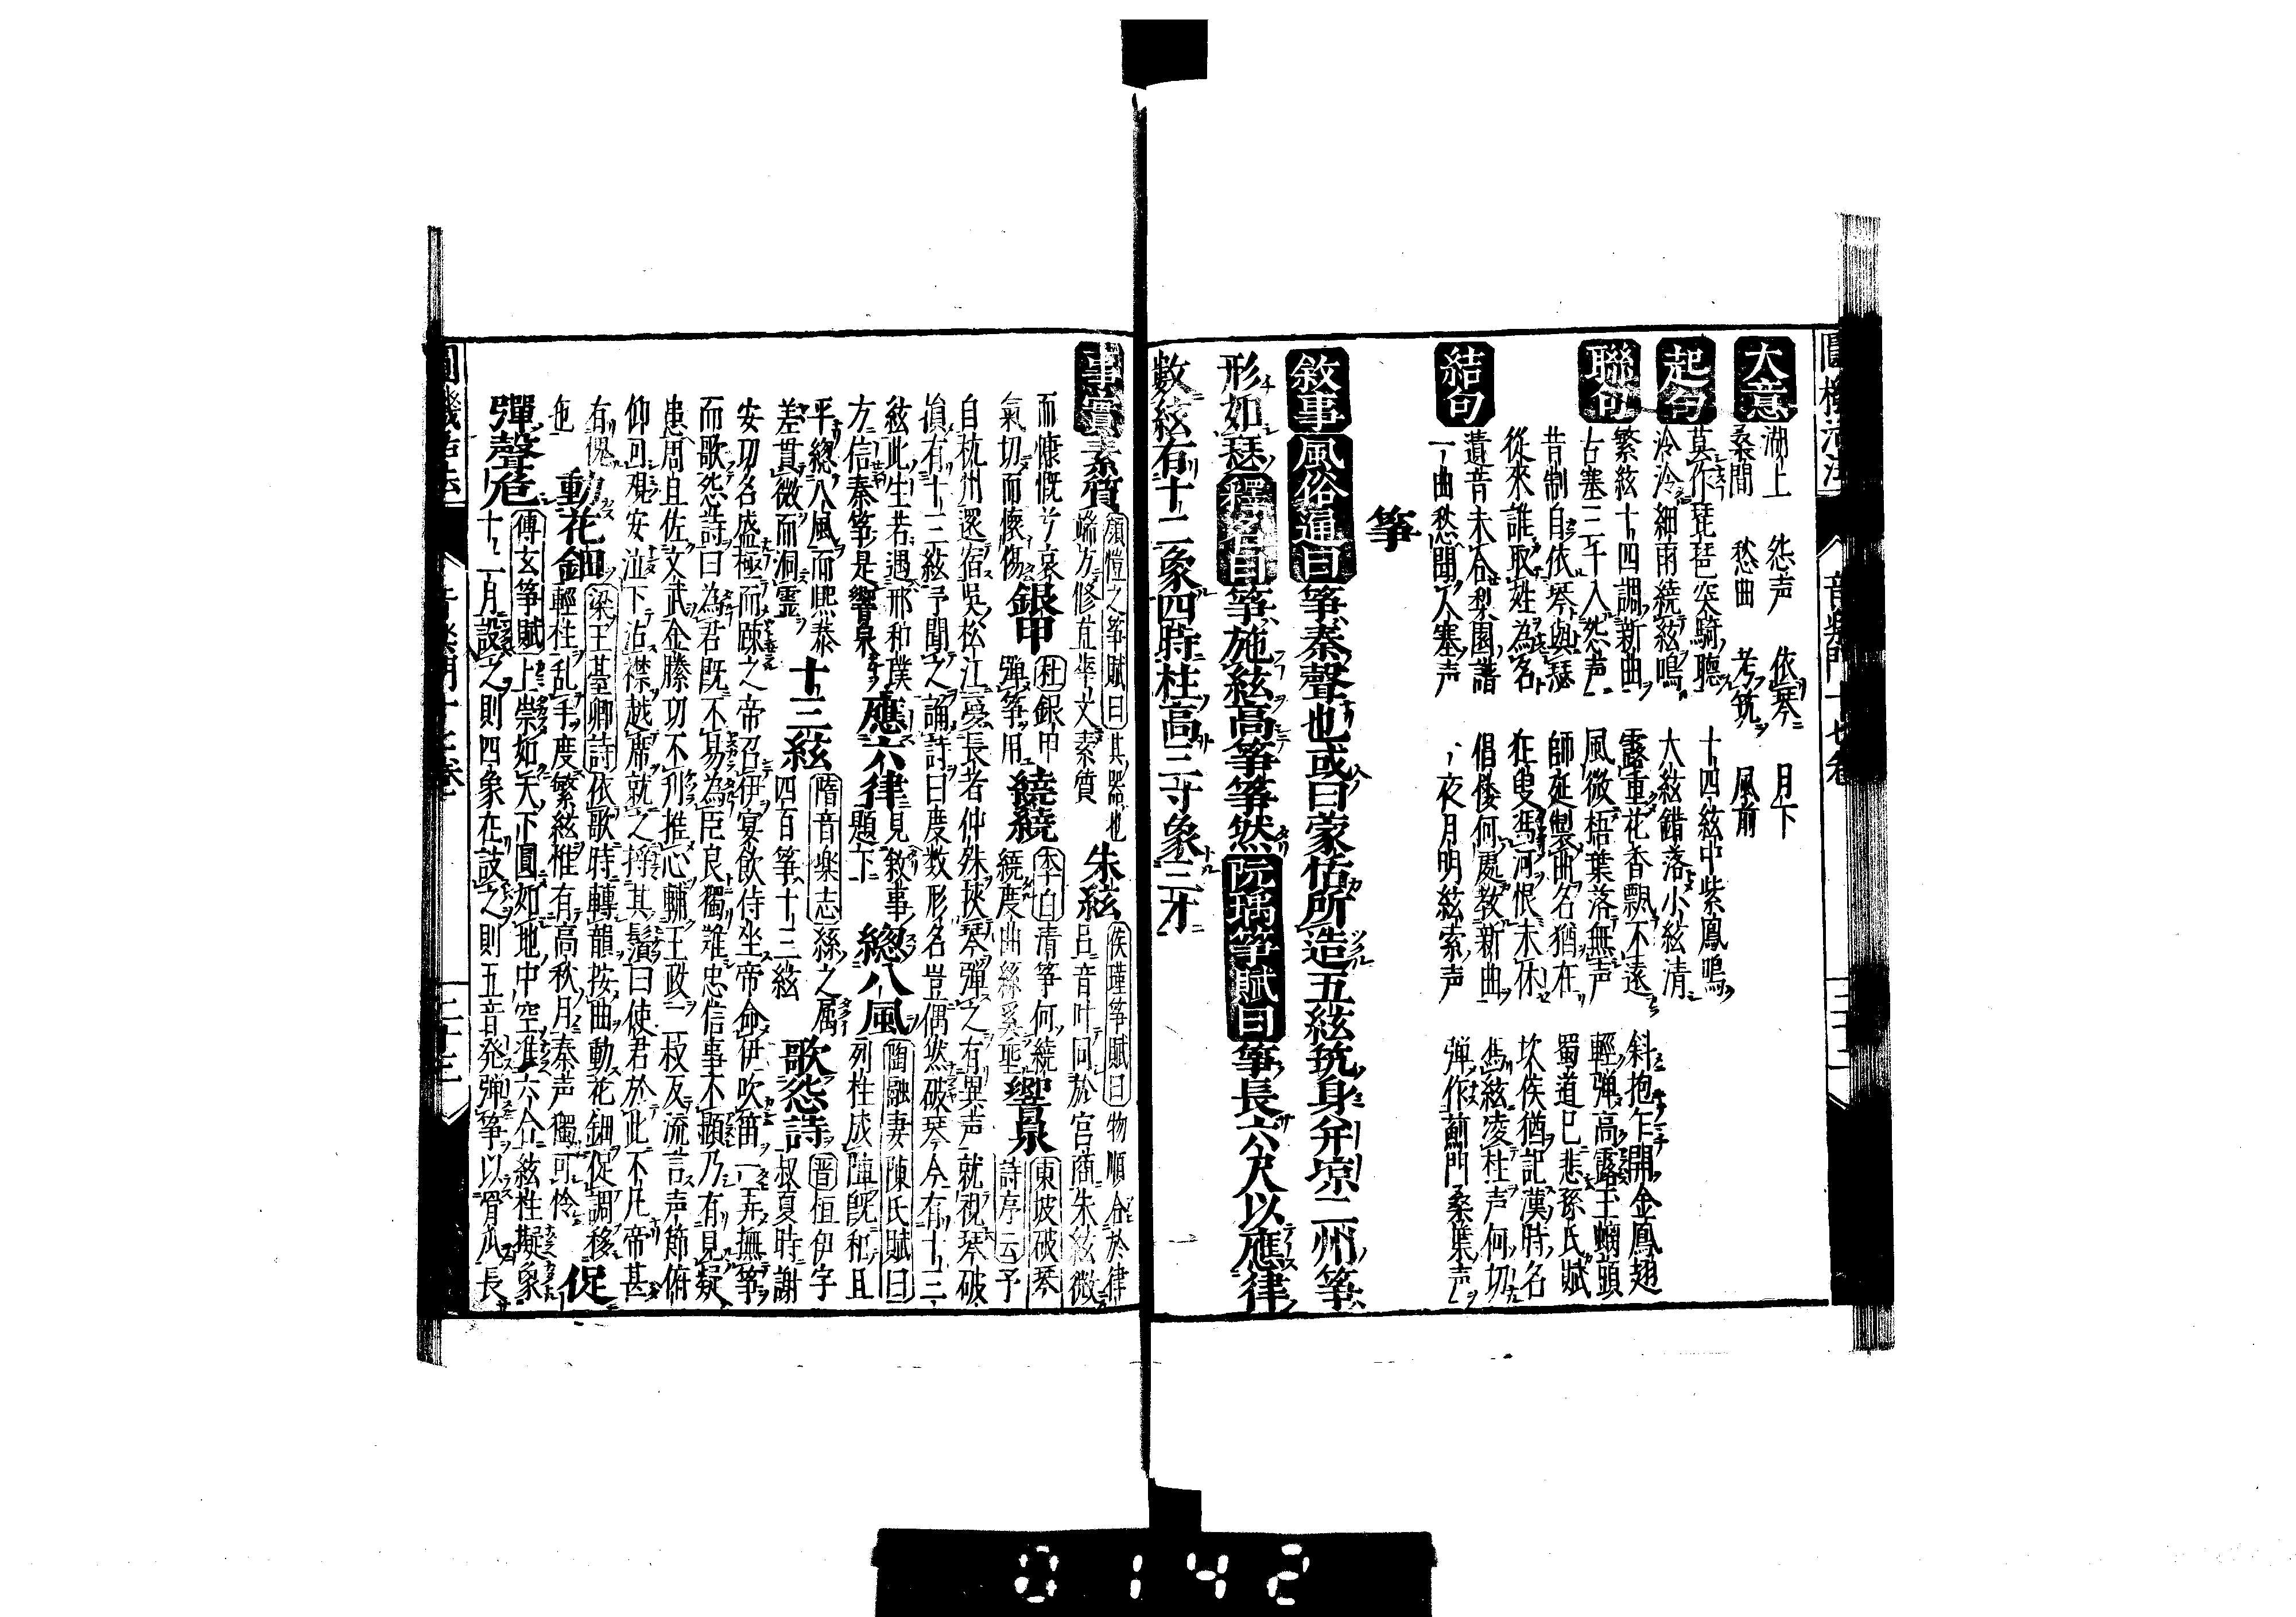 大意
湖上　怨声　依琴　月下
桑間　愁曲　考筑　風前
起句
莫作琵琶突騎聽　十四絃中紫鳳鳴
泠泠細雨繞絃鳴　大絃錯落小絃清
聯句
繁絃十四調新曲　露重花香飄不遠　斜抱乍開金鳳翅
古塞三千入怨声　風微梧葉落無声　輕弾高露玉蝴頭
昔制自依琴與瑟　師延製曲名猶在　蜀道已悲孫氏賦
從來誰取姓為名　狂叟馮河恨未休　坎侯猶記漢時名
結句
遺音未合梨園譜　倡優何處教新曲　危絃凌柱声何切
一曲愁聞人塞声　夜月明絃索声　弾作薊門桑葉声
箏
敘事　風俗通曰箏秦聲也或曰蒙恬所造五絃筑身并凉二州箏
形如瑟　釋名曰箏施絃高箏箏然　阮瑀箏賦曰箏長六尺以應律
數絃有十二象四時柱高三寸象三才
事實　素質　顧愷之箏賦曰其器也　朱絃　侯瑾箏賦曰物順合於律
端方修直華文素質　呂音叶同於宮商朱絃微
而慷慨兮哀　銀甲　杜銀甲　繞繞　李白清箏何繞　響泉　東坡破琴
氣切而懷傷　彈箏用　繞度曲綠　詩序云予
自杭州還宿吳松江夢長者仲殊挾琴彈之有異声就視琴破
損有十三絃予聞之誦詩曰度数形名豈偶然破琴今有十三
絃此生若遇邢和璞　應六律　見敘事　總八風　陶融妻陳氏賦曰
方信秦箏是響泉　題下　列柱成陣既和且
平總八風而熙泰　十三絃　隋音楽志絲之属　歌怨詩　晋桓伊字
差貫微而洞霊　四百箏十三絃　叔夏時謝
安功名盛極而踈之帝召伊宴飲侍坐帝命伊吹笛一弄撫箏
而歌怨詩曰為君既不易為臣良獨難忠信事不顕乃有見疑
患周旦佐文武金縢功不刋推心輔王政二叔反流言声節俯
仰可观安泣下沾襟越席就之捋其鬚曰使君於此不凡帝甚
有愧　動花鈿　梁王臺卿詩依歌時轉韻按曲動花鈿促調移
也　輕柱乱手度繁絃惟有高秋月秦声獨可怜　促
彈聲危　傅玄箏賦上崇如天下圓如地中空准六合絃柱擬象
十二月設之則四象在鼓之則五音発弾箏以骨爪長
圓機活法　音楽門十七卷　三十三
0142